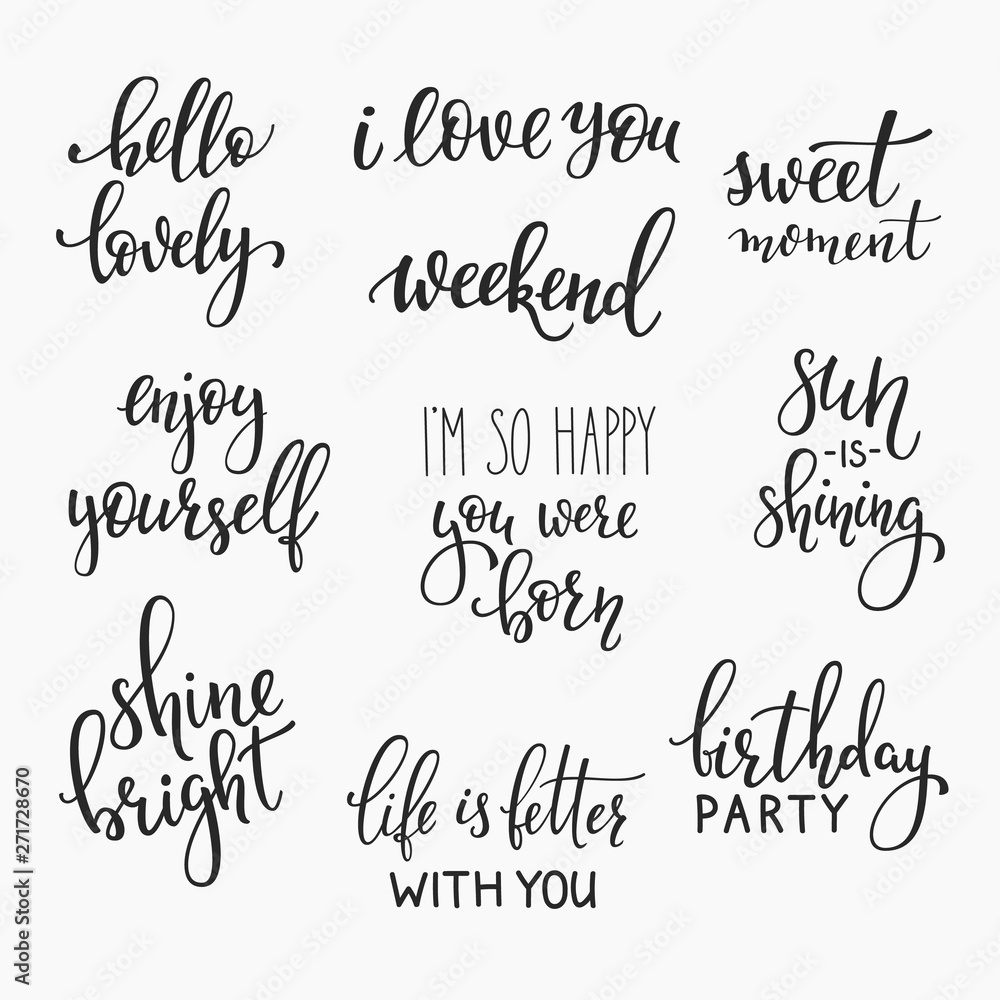 hello
lovely
i love you
weekend
sweet
moment
enjoy
yourself
I'M SO HAPPY
you were
born
sun
-IS-
shining
shine
bright
life is fetter
WITH YOU
birthday
PARTY
Adobe Stock | #271728670